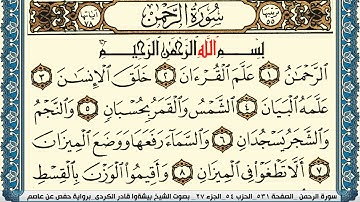 سُورَةُ الرَّحْمٰن
بِسْمِ اللَّهِ الرَّحْمَٰنِ الرَّحِيمِ
الرَّحْمَٰنُ ١ عَلَّمَ الْقُرْءَانَ ٢ خَلَقَ الْإِنسَٰنَ ٣
عَلَّمَهُ الْبَيَانَ ٤ الشَّمْسُ وَالْقَمَرُ بِحُسْبَانٍ ٥ وَالنَّجْمُ
وَالشَّجَرُ يَسْجُدَانِ ٦ وَالسَّمَآءَ رَفَعَهَا وَوَضَعَ الْمِيزَانَ
٧ أَلَّا تَطْغَوْا۟ فِى الْمِيزَانِ ٨ وَأَقِيمُوا۟ الْوَزْنَ بِالْقِسْطِ
سورة الرحمن _ الصفحة ٥٣١ _ الحزب ٥٤ _ الجزء ٢٧ _ بصوت الشيخ بيشةوا قادر الكردى _ برواية حفص عن عاصم